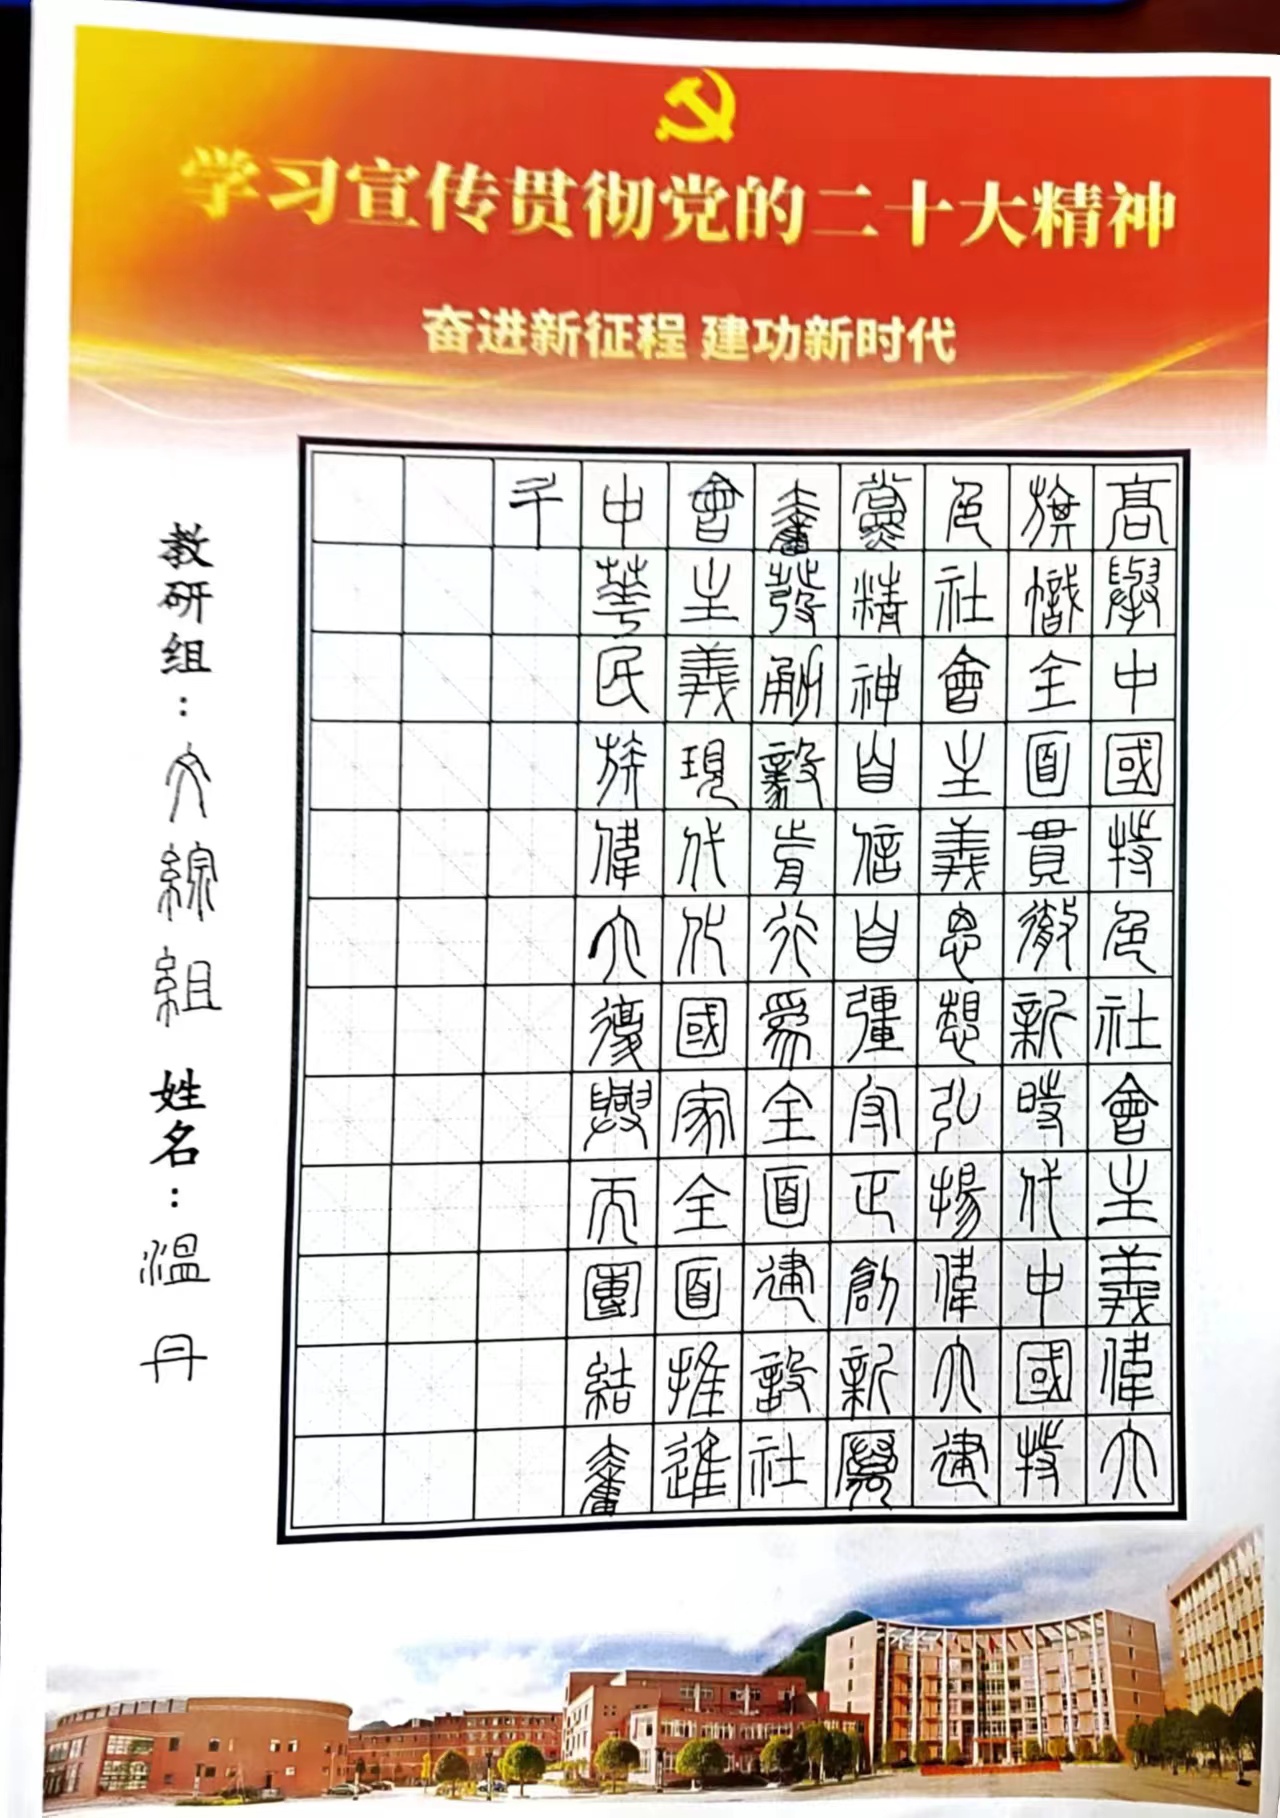 学习宣传贯彻党的二十大精神
奋进新征程 建功新时代
高舉中國特色社會主義偉大
旗幟全面貫徹新時代中國特
色社會主義思想弘揚偉大建
黨精神自信自彊守正創新
奮發勇毅前行為全面建設社
會主義現代化國家全面推進
中華民族偉大復興而團結奮
斗
教研组：文綜組 姓名：溫丹